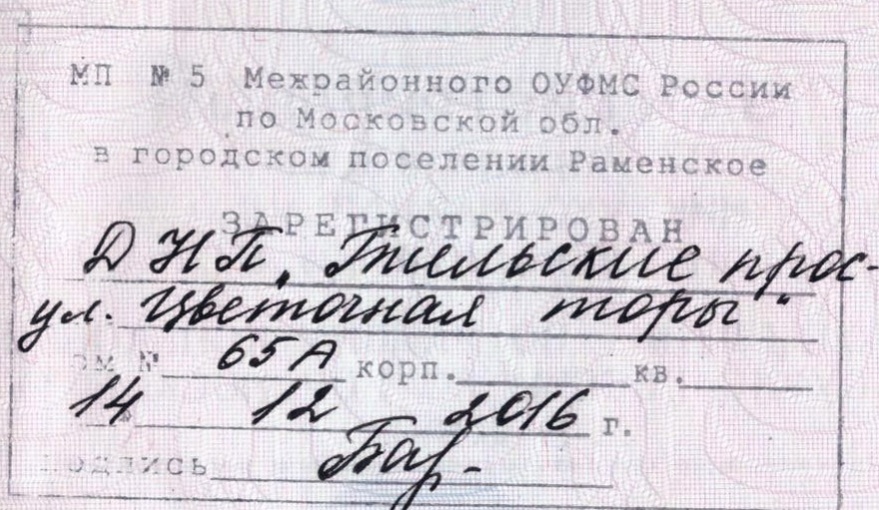 МП № 5 Межрайонного ОУФМС России
по Московской обл.
в городском поселении Раменское
ЗАРЕГИСТРИРОВАН
ДНП „Гжельские прос-
ул. Цветочная торы"
дом № 65А корп. кв.
14 12 2016 г.
подпись Бар-